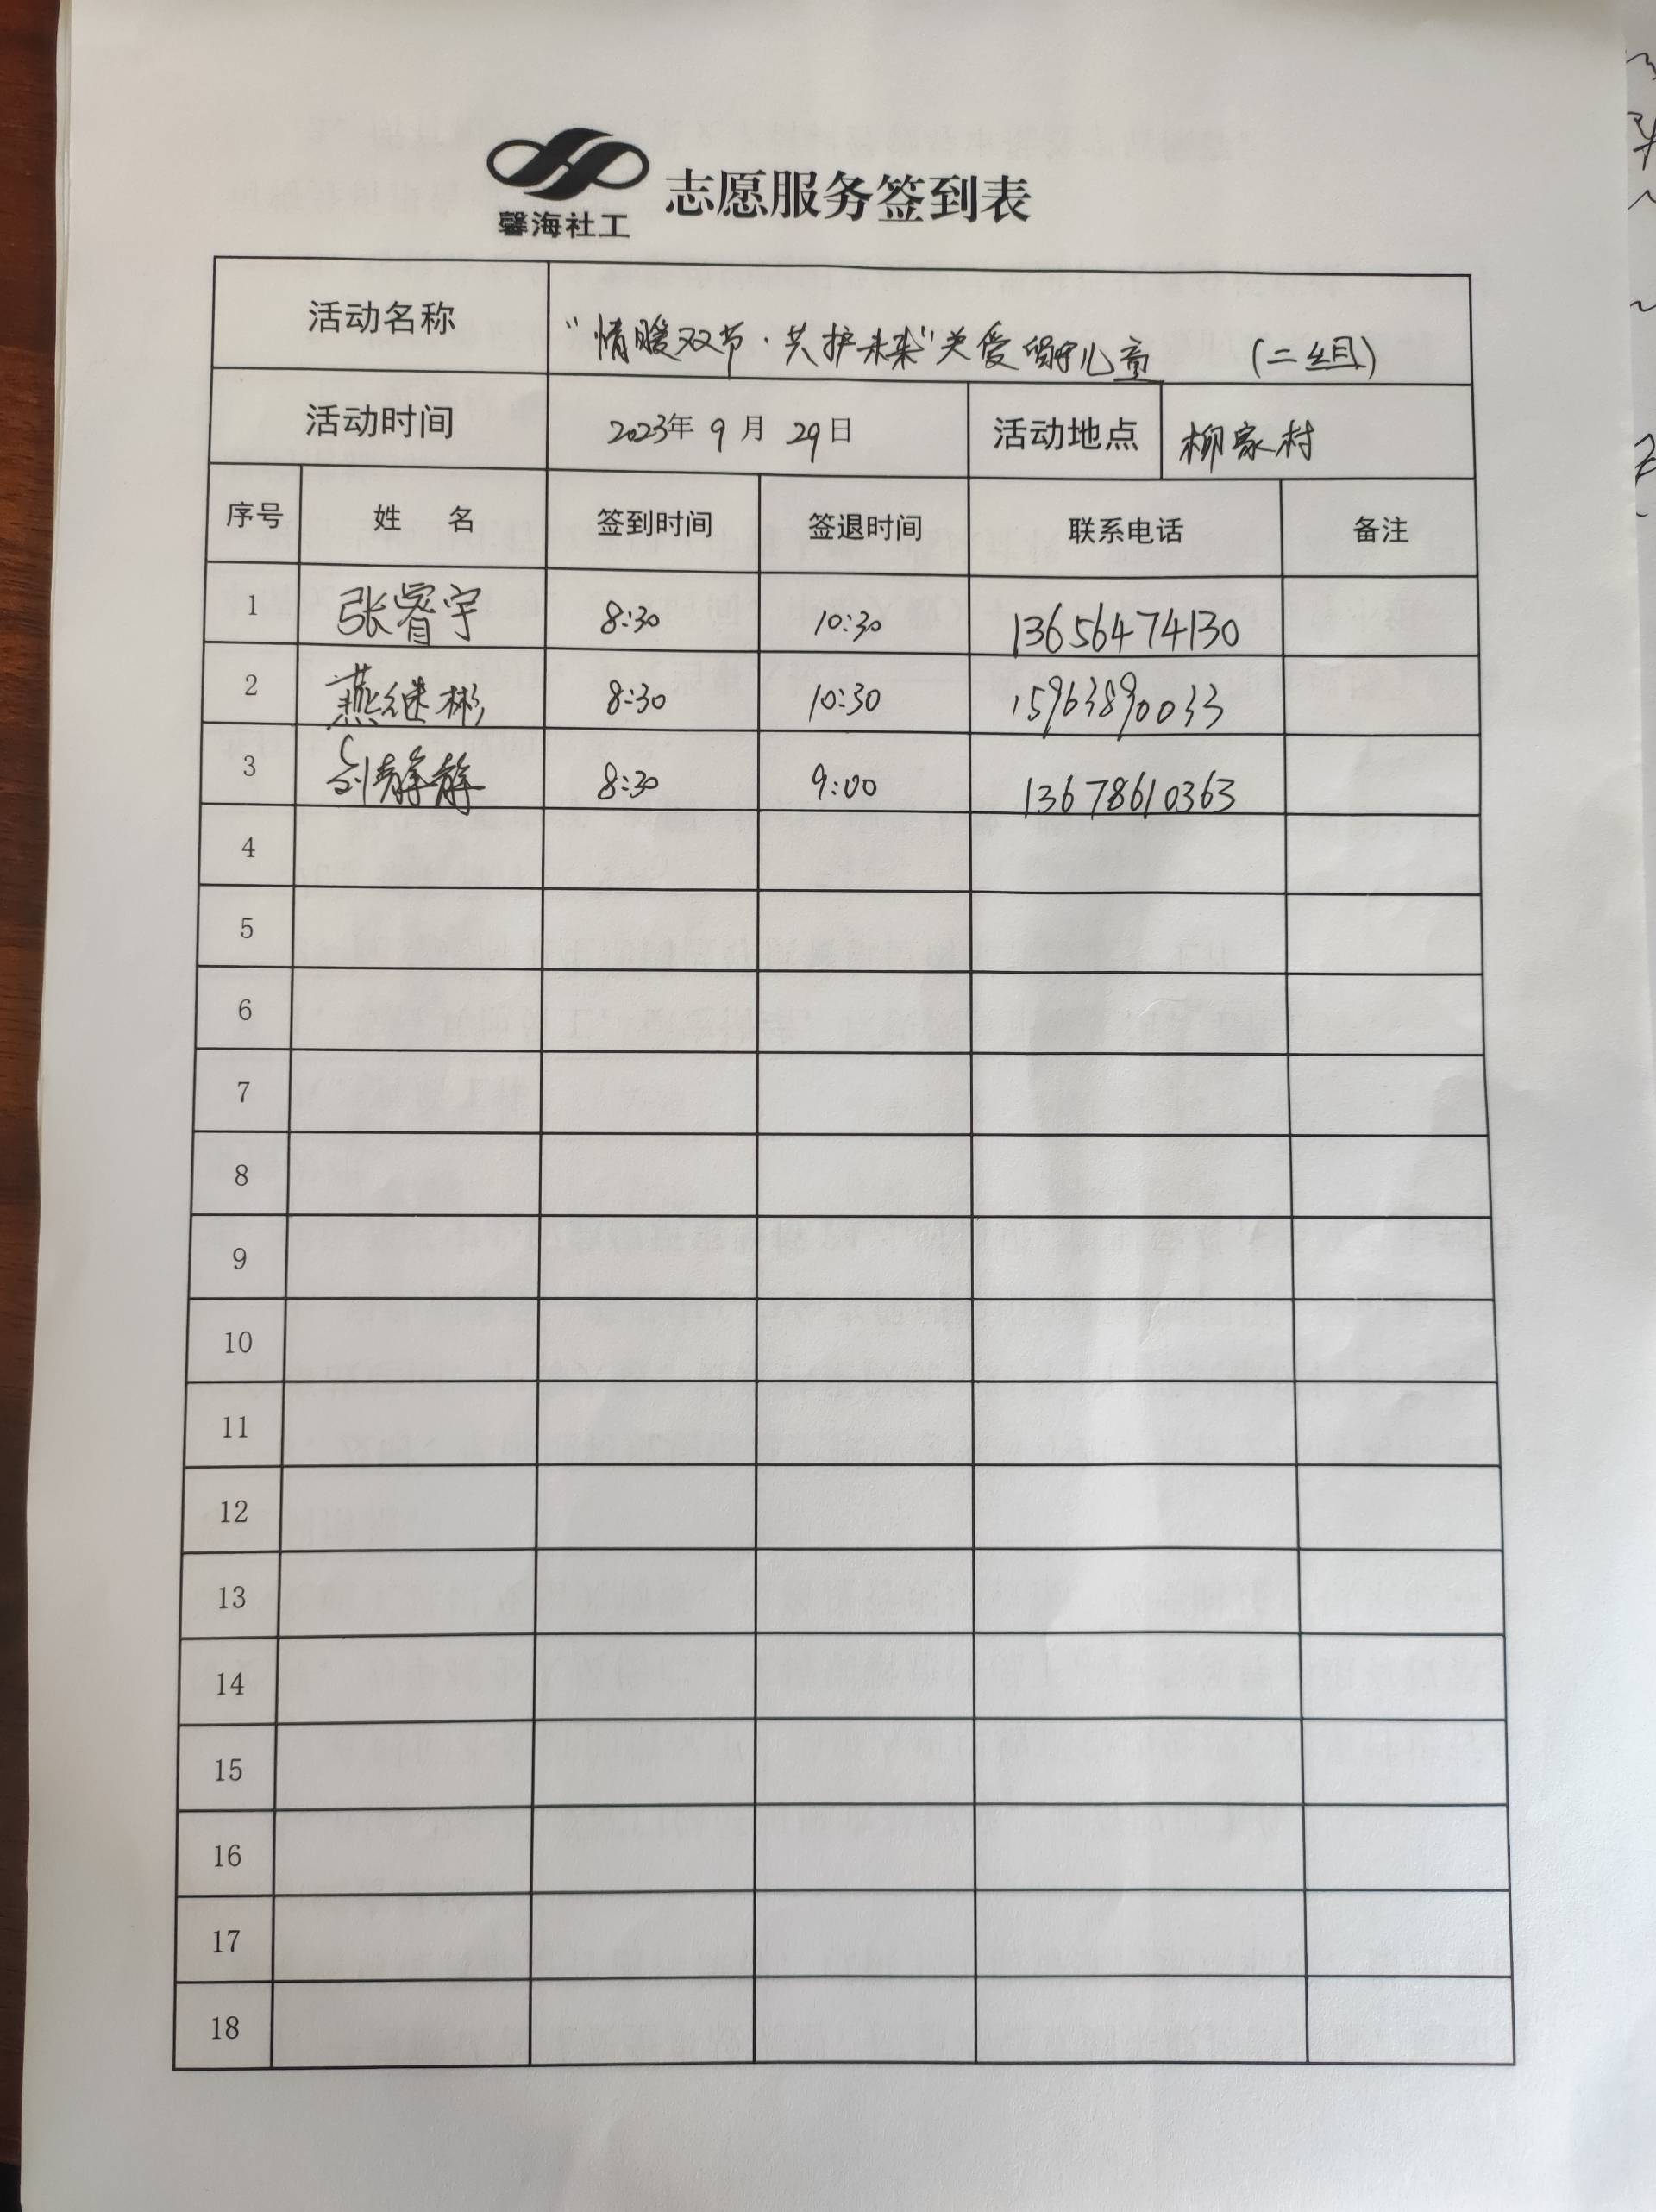 馨海社工 志愿服务签到表
活动名称 “情暖双节·共护未来”关爱留守儿童 (二组)
活动时间 2023年 9 月 29日 活动地点 柳家村
序号 姓 名 签到时间 签退时间 联系电话 备注
1 张睿宇 8:30 10:30 13656474130
2 燕继彬 8:30 10:30 15963890033
3 刘静静 8:30 9:00 13678610363
4
5
6
7
8
9
10
11
12
13
14
15
16
17
18